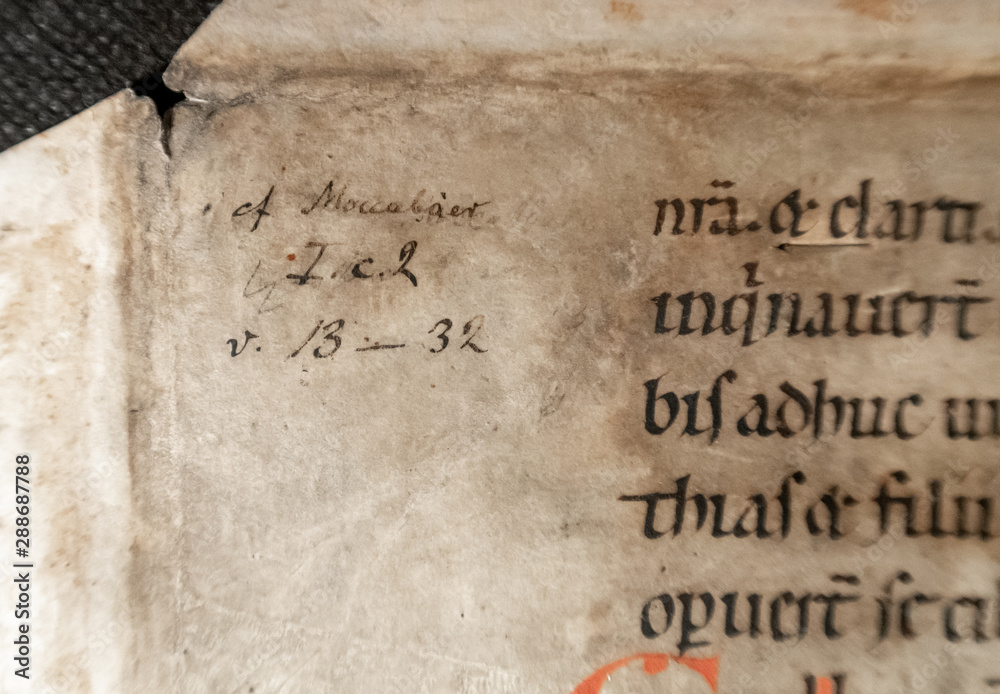 cf Maccabäer
I. c. 2
v. 13 – 32
nr̄a. & clarit
inq̇nauert̄
bis adhuc
thias & filii
oꝑuert̄ se cil
Adobe Stock | 288687788